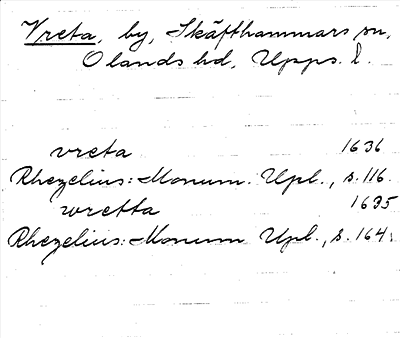 Vreta, by, Skäfthammars sn,
Olands hd, Upps. l.
vreta 1636
Rhezelius: Monum. Upl., s. 116.
wretta 1635
Rhezelius: Monum Upl., s. 164.